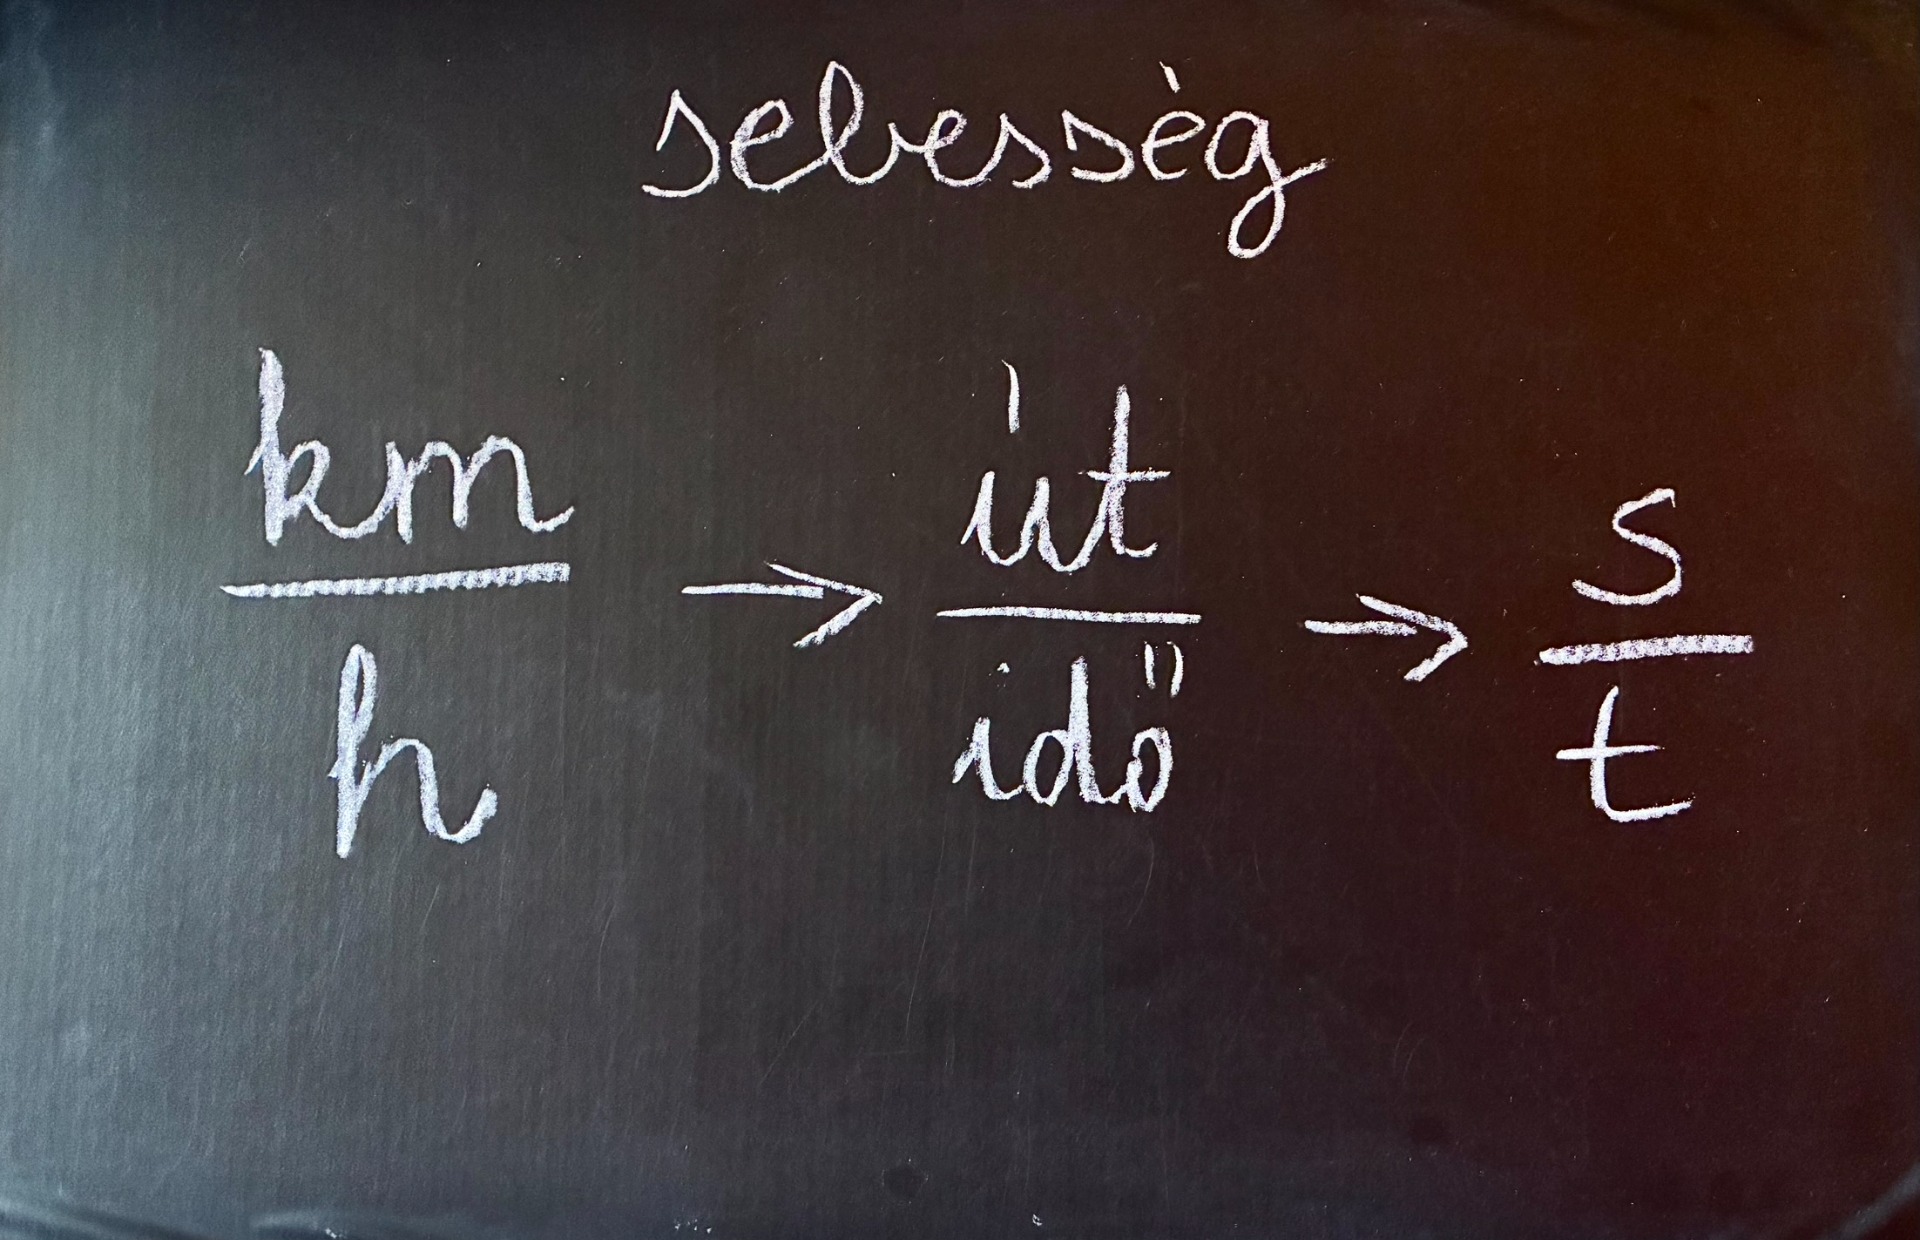 sebesség
km/h → út/idő → s/t